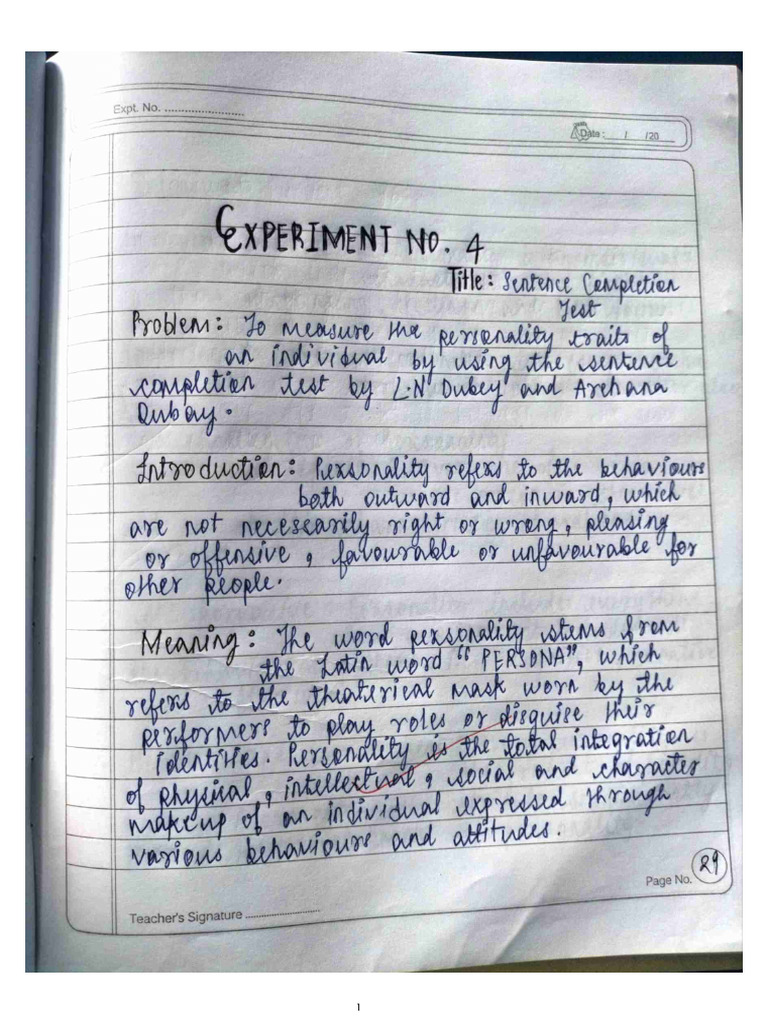 Expt. No. ........................
Date : / /20
EXPERIMENT NO. 4
Title: Sentence Completion
Test
Problem: To measure the personality traits of
an individual by using the sentence
completion test by L.N Dubey and Archana
Dubay.
Introduction: Personality refers to the behaviours
both outward and inward, which
are not necessarily right or wrong, pleasing
or offensive, favourable or unfavourable for
other people.
Meaning: The word personality stems from
the Latin word "PERSONA", which
refers to the theaterical mask worn by the
performers to play roles or disguise their
identities. Personality is the total integration
of physical, intellectual, social and character
makeup of an individual expressed through
various behaviours and attitudes.
Page No. 29
Teacher's Signature ........................
1